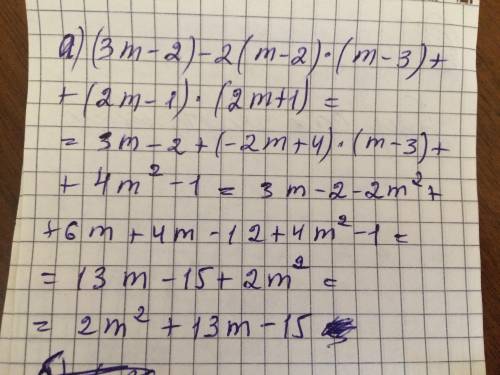 а) (3m-2)-2(m-2)·(m-3)+
+(2m-1)·(2m+1)=
=3m-2+(-2m+4)·(m-3)+
+4m²-1=3m-2-2m²+
+6m+4m-12+4m²-1=
=13m-15+2m²=
=2m²+13m-15